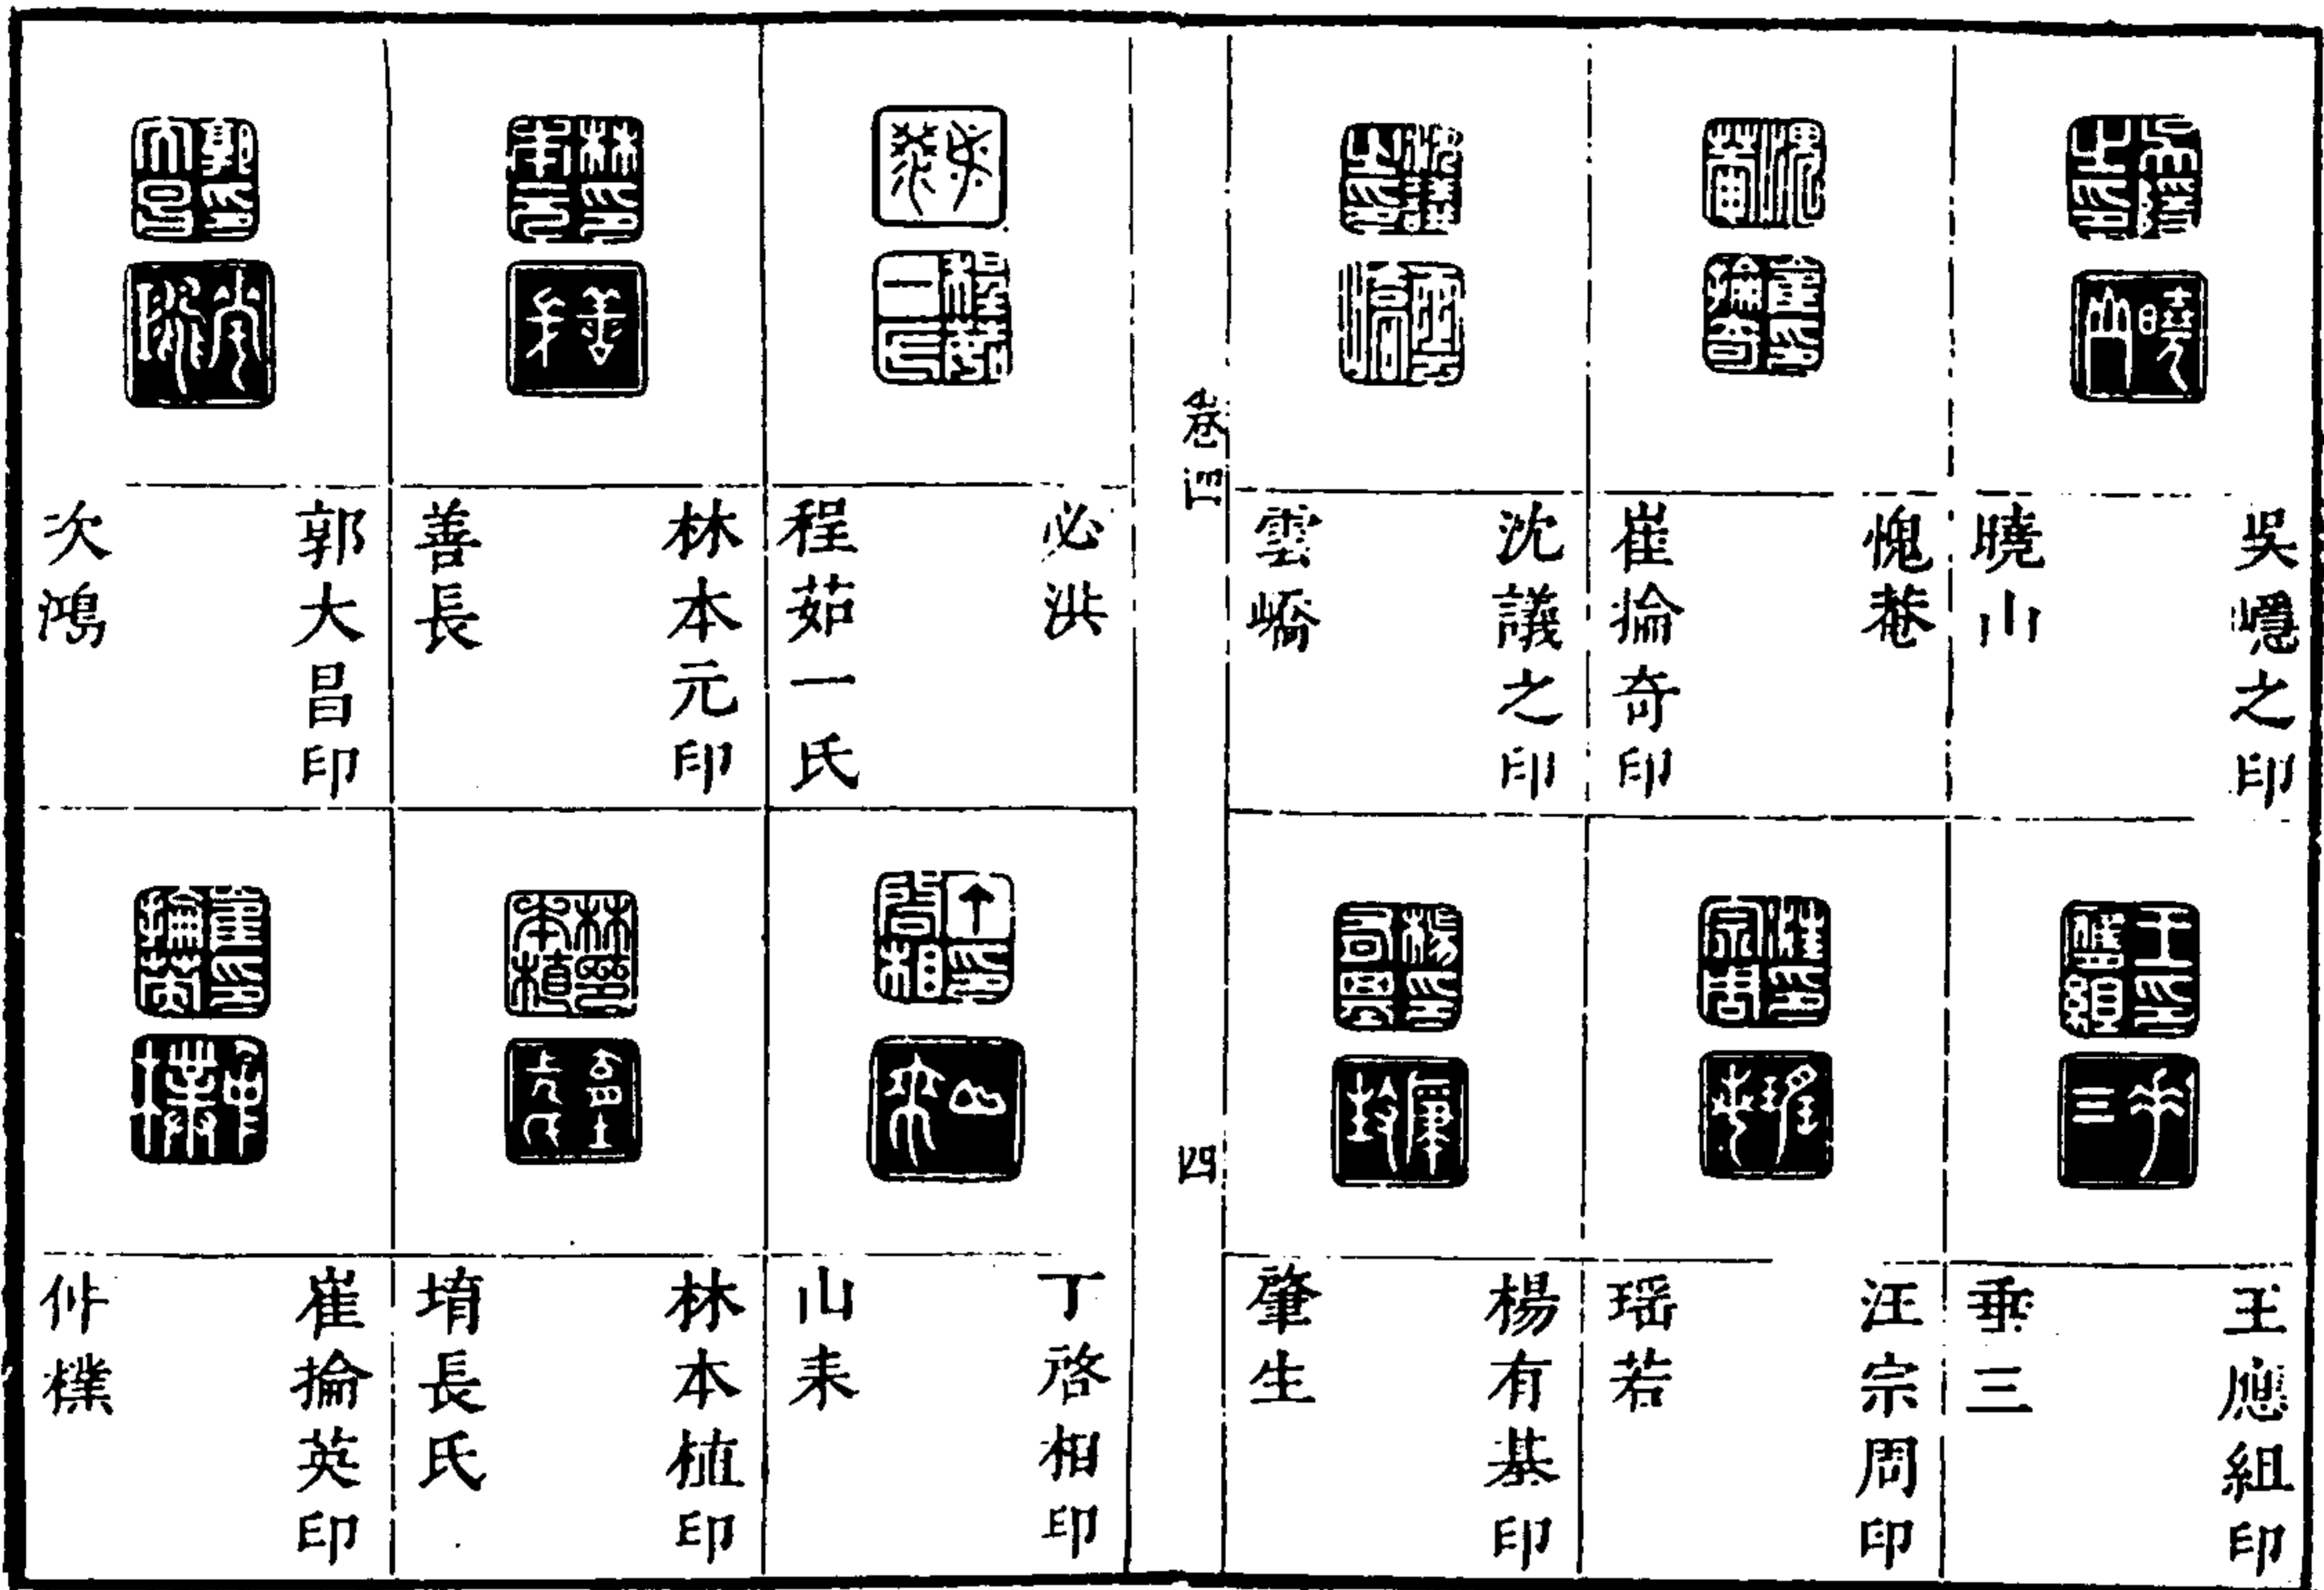 吳㠥之印
曉山
愧菴
崔掄奇印
沈議之印
雲嶠
王應組印
垂三
汪宗周印
瑶若
楊有基印
肇生
卷
四
必洪
程茹一氏
林本元印
善長
郭大昌印
次鴻
丁啓相印
山耒
林本植印
堉長氏
崔掄英印
仲樸